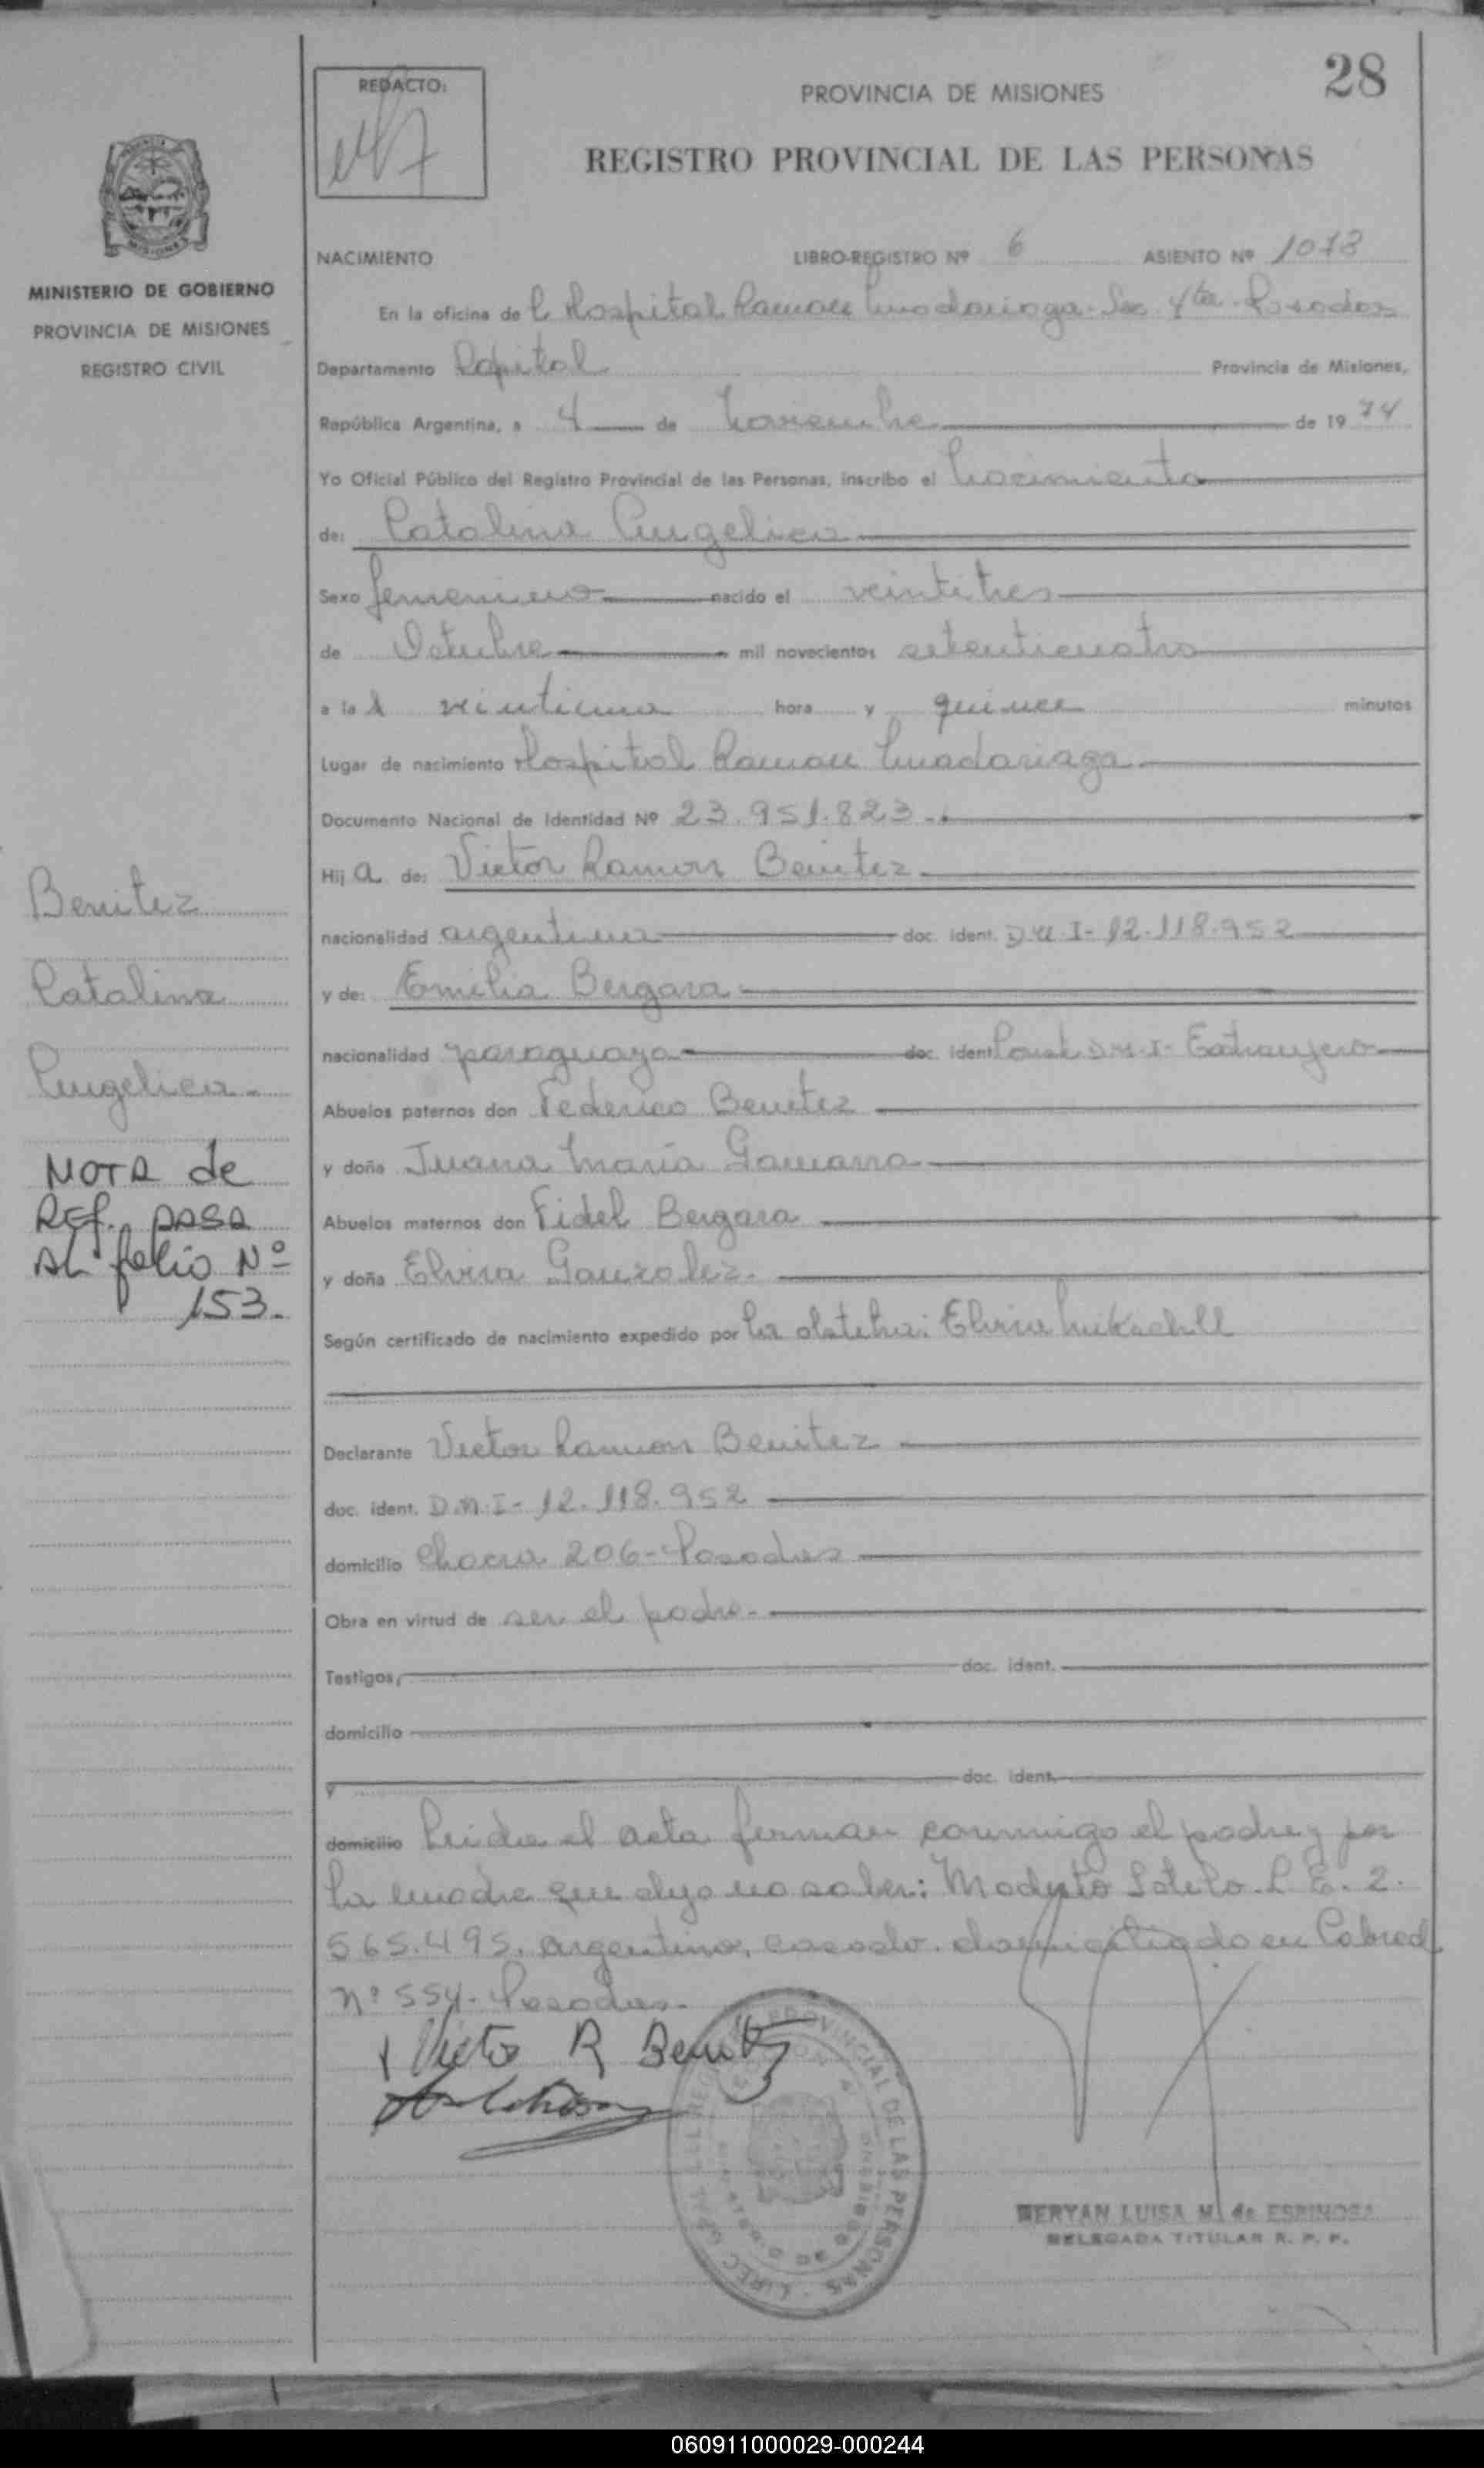 28
REDACTO:
PROVINCIA DE MISIONES
REGISTRO PROVINCIAL DE LAS PERSONAS
MINISTERIO DE GOBIERNO
PROVINCIA DE MISIONES
REGISTRO CIVIL
NACIMIENTO LIBRO-REGISTRO Nº 6 ASIENTO Nº 1073
En la oficina del Hospital Ramon Madariaga - Sec 4ta - Posadas
Departamento Capital Provincia de Misiones,
República Argentina, a 4 de noviembre de 1974
Yo Oficial Público del Registro Provincial de las Personas, inscribo el nacimiento
de: Catalina Angelica
Sexo femenino nacido el veintitres
de Octubre mil novecientos setenticuatro
a la s veintiuna hora y quince minutos
Lugar de nacimiento Hospital Ramon Madariaga
Documento Nacional de Identidad Nº 23.951.823
Hij a de: Victor Ramon Benitez
nacionalidad argentina doc. ident. D.N.I- 12.118.952
y de: Emilia Bergara
nacionalidad paraguaya doc. ident. D.N.I- Extranjero
Abuelos paternos don Federico Benitez
y doña Juana Maria Gamarra
Abuelos maternos don Fidel Bergara
y doña Elvira Gonzalez.
Según certificado de nacimiento expedido por la obstetra: Elvira
Declarante Victor Ramon Benitez
doc. ident. D.N.I- 12.118.952
domicilio Chacra 206- Posadas
Obra en virtud de ser el padre.
Testigos, doc. ident.
domicilio
y doc. ident.
domicilio Leida el acta firman conmigo el padre y por
la madre que dijo no saber: Modesto Sotelo. L.E. 2.
565.495. argentino, casado. domiciliado en Cabred
nº 554- Posadas.
Victor R Benitez
MERYAN LUISA M. de ESPINOSA
DELEGADA TITULAR R. P. P.
Benitez
Catalina
Angelica-
NOTA de
REF. PASA
AL folio Nº
153.
060911000029-000244